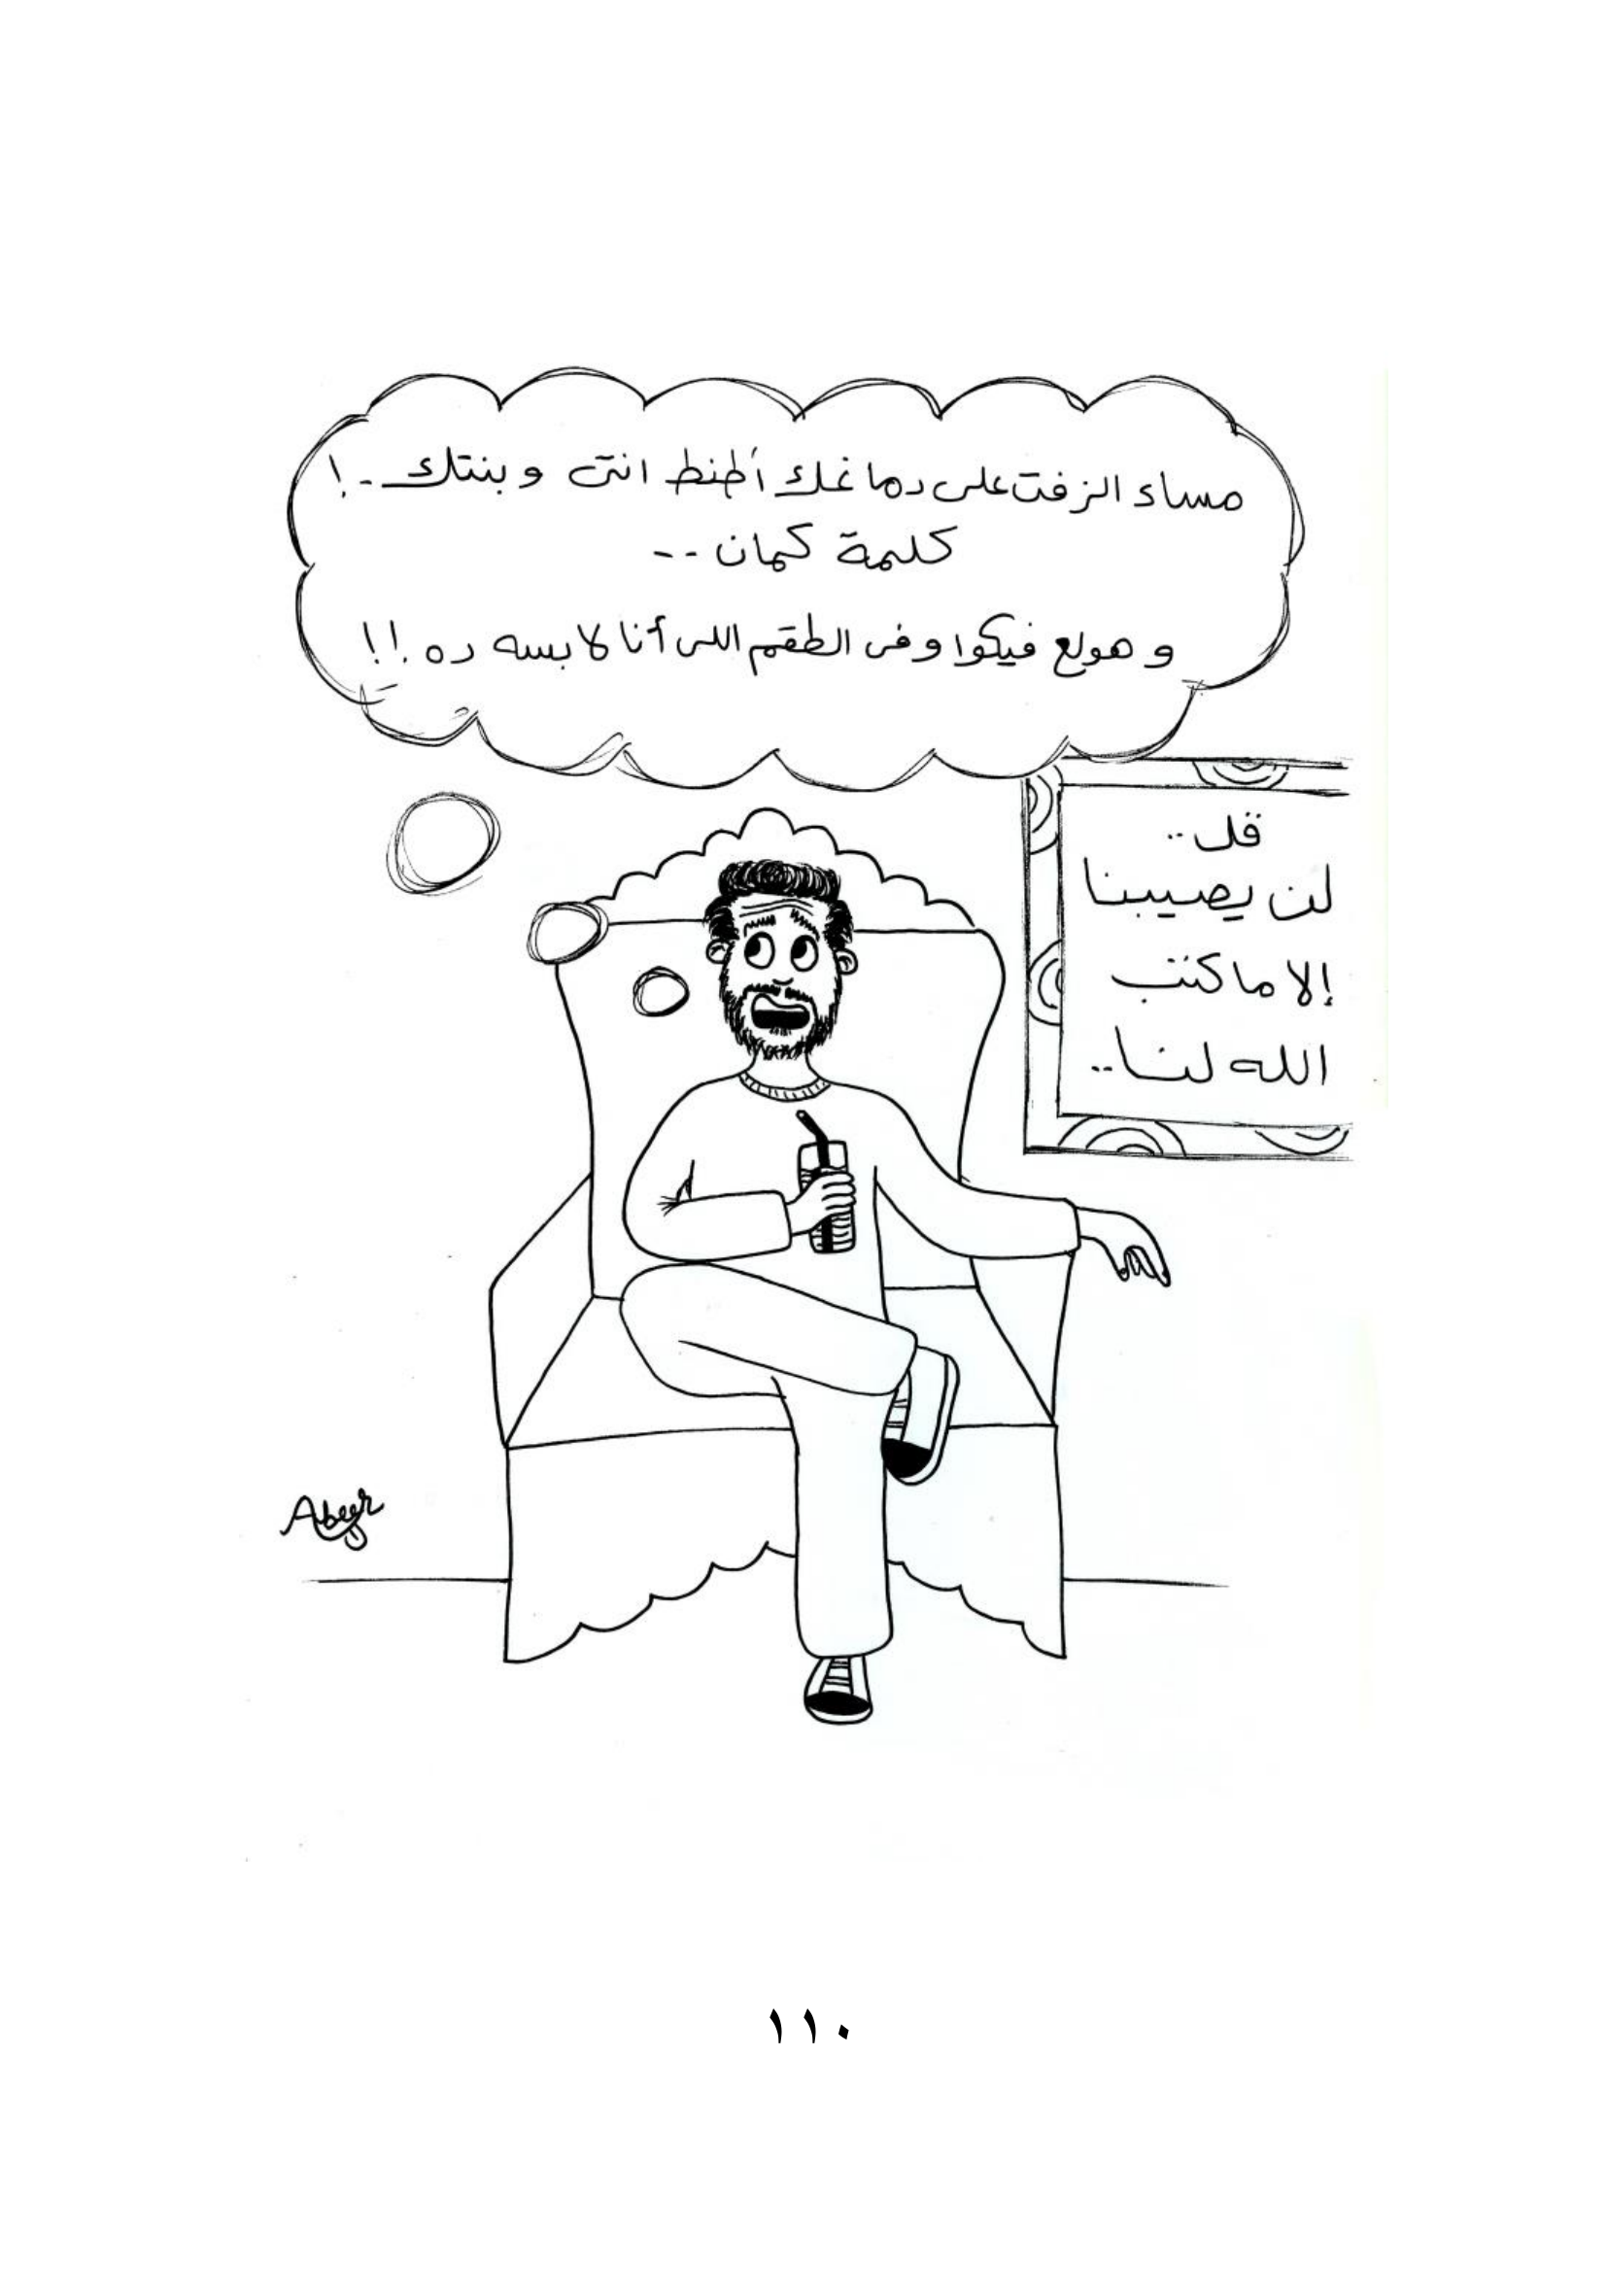 مساء الزفت على دماغك أطنط انتى و بنتك..!
كلمة كمان --
و هولع فيكوا و فى الطقم اللى أنا لابسه ده !!
قل..
لن يصيبنا
إلا ما كتب
الله لنا..
Abeer
١١٠